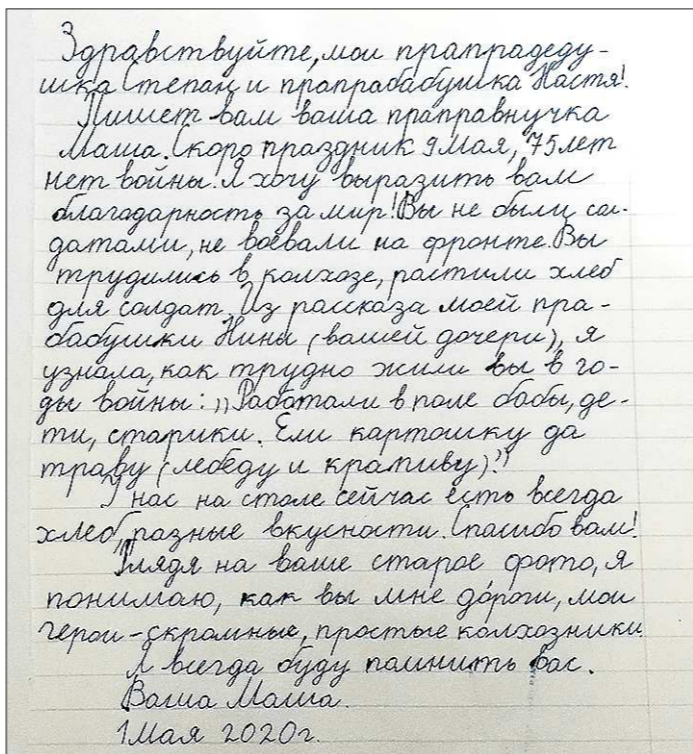 Здравствуйте, мои прапрадеду-
шка Степан и прапрабабушка Настя!
Пишет вам ваша праправнучка
Маша. Скоро праздник 9 Мая, 75 лет
нет войны. Я хочу выразить вам
благодарность за мир! Вы не были сол-
датами, не воевали на фронте. Вы
трудились в колхозе, растили хлеб
для солдат. Из рассказа моей пра-
бабушки Нины (вашей дочери), я
узнала, как трудно жили вы в го-
ды войны: „Работали в поле бабы, де-
ти, старики. Ели картошку да
траву (лебеду и крапиву)."
У нас на столе сейчас есть всегда
хлеб, разные вкусности. Спасибо вам!
Глядя на ваше старое фото, я
понимаю, как вы мне дороги, мои
герои - скромные, простые колхозники
Я всегда буду помнить вас.
Ваша Маша.
1 Мая 2020г.